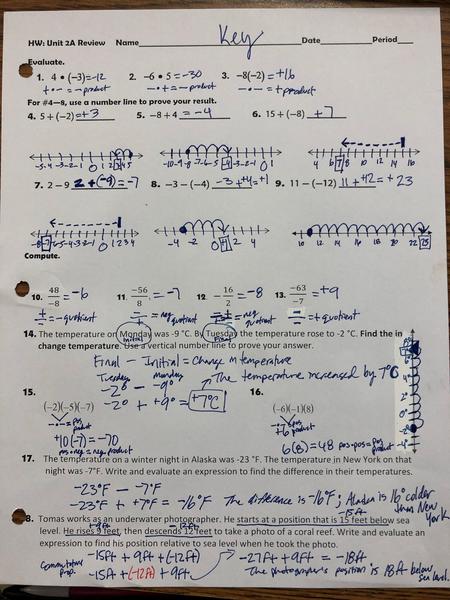 Key
HW: Unit 2A Review Name Date Period
Evaluate.
1. 4 • (−3)=-12 2. −6 • 5 = -30 3. −8(−2) = +16
+ · - = - product - · + = - product - · - = + product
For #4—8, use a number line to prove your result.
4. 5 + (−2) = +3 5. −8 + 4 = -4 6. 15 + (−8) +7
-5 -4 -3 -2 -1 0 1 2 3 4 5 -10 -9 -8 -7 -6 -5 -4 -3 -2 -1 0 1 4 6 7 8 10 12 14 16
7. 2 − 9 2 + (-9) = -7 8. −3 −(−4) -3 + +4 = +1 9. 11 −(−12) 11 + +12 = +23
-8 -7 -6 -5 -4 -3 -2 -1 0 1 2 3 4 -4 -2 0 +1 2 4 10 12 14 16 18 20 22 23
Compute.
10. 48/−8 = -6 11. −56/8 = -7 12. −16/2 = -8 13. −63/−7 = +9
+/- = - quotient -/+ = neg quotient -/+ = neg quotient -/- = + quotient
14. The temperature on Monday was -9 °C. By Tuesday the temperature rose to -2 °C. Find the
Initial Final
change temperature. Use a vertical number line to prove your answer.
Final - Initial = Change in temperature
Tuesday Monday
-2° - -9° The temperature increased by 7°C
-2° + +9° = +7°C
15. 16.
(−2)(−5)(−7) (−6)(−1)(8)
- · - = pos product
+10(-7) = -70 6(8) = 48 pos · pos = pos product
pos · neg = neg product
17. The temperature on a winter night in Alaska was -23 °F. The temperature in New York on
that night was -7°F. Write and evaluate an expression to find the difference in their temperatures.
-23°F - -7°F
-23°F + +7°F = -16°F The difference is -16°F; Alaska is 16° colder than New York
-15ft
8. Tomas works as an underwater photographer. He starts at a position that is 15 feet below sea
+9ft -12ft
level. He rises 9 feet, then descends 12 feet to take a photo of a coral reef. Write and evaluate an
expression to find his position relative to sea level when he took the photo.
-15ft + 9ft + (-12ft) -27ft + 9ft = -18ft
Commutative Prop. -15ft + (-12ft) + 9ft The photographer's position is 18ft below sea level.